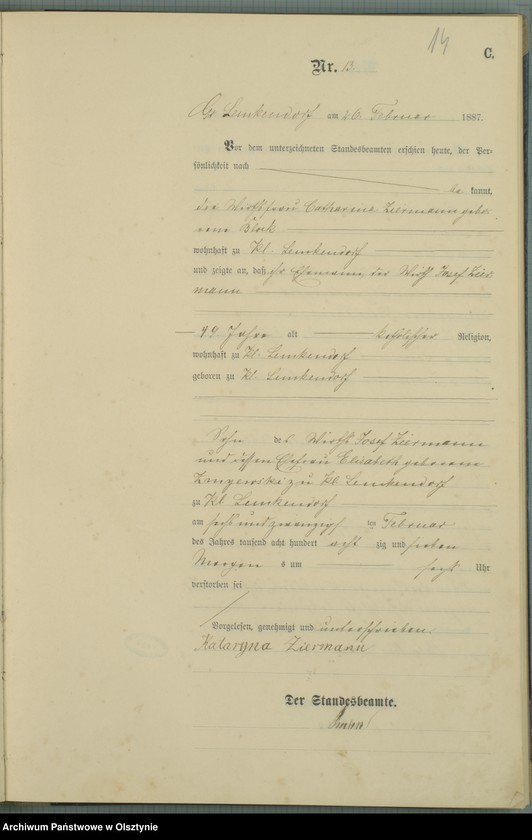 14
C.
Nr. 13
Gr. Lemkendorf am 26 Februar 1887.
Vor dem unterzeichneten Standesbeamten erschien heute, der Per-
sönlichkeit nach
be kannt,
die Wirthsfrau Catharina Ziermann gebo-
rene Block
wohnhaft zu Kl. Lemkendorf
und zeigte an, daß ihr Ehemann, der Wirth Josef Zier
mann
49 Jahre alt katholischer Religion,
wohnhaft zu Kl. Lemkendorf
geboren zu Kl. Lemkendorf
Sohn des Wirth Josef Ziermann
und dessen Ehefrau Elisabeth geborene
zu Kl. Lemkendorf
zu Kl Lemkendorf
am sechs und zwanzigsten Februar
des Jahres tausend acht hundert acht zig und sieben
Morgen s um sechs Uhr
verstorben sei
Vorgelesen, genehmigt und unterschrieben.
Kataryna Ziermann
Der Standesbeamte.
Archiwum Państwowe w Olsztynie